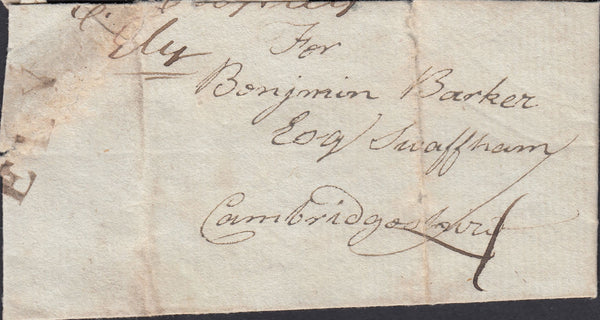 Ely
For
Benjmin Barker
Esq Swaffham
Cambridgeshire
4
ELY